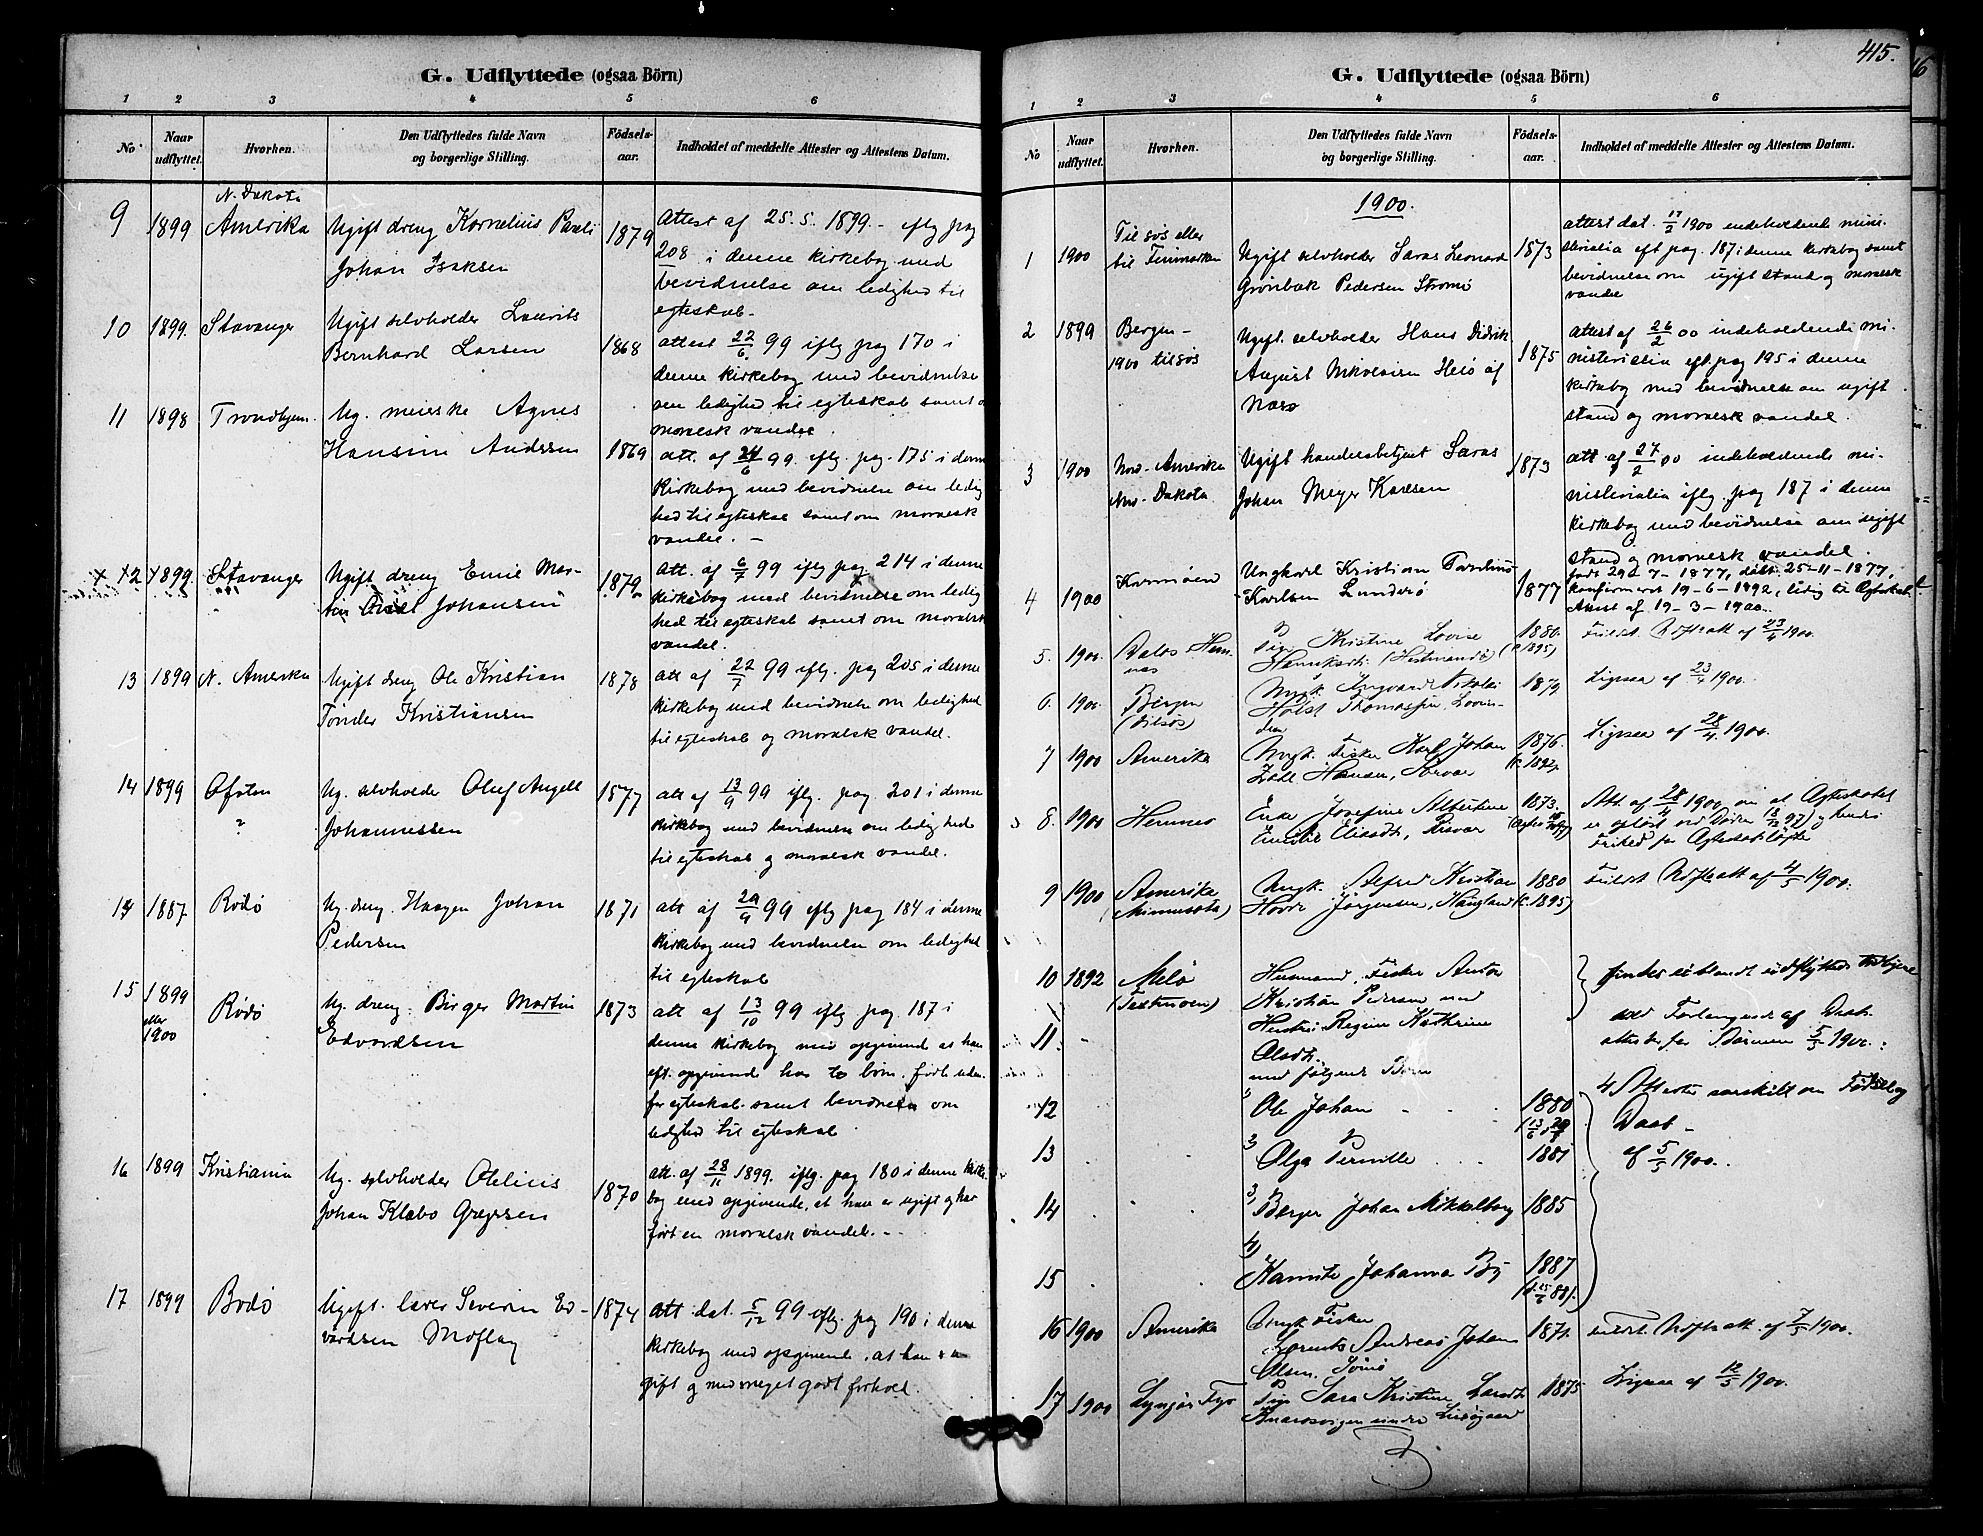 G. Udflyttede (ogsaa Börn)
1 2 3 4 5 6
No Naar udflyttet. Hvorhen. Den Udflyttedes fulde Navn og borgerlige Stilling. Födsels-aar. Indholdet af meddelte Attester og Attestens Datum.
N. Dakota
9 1899 Amerika Ugift dreng Kornelius 1879 Attest af 25.5.1899 - iflg pag
Johan Isaksen 208 i denne kirkebog med
bevidnelse om ledighed til
egteskab -
10 1899. Stavanger Ugift selvholder Laurits
Bernhard Larsen 1868 attest 22/6 99 iflg pag 170 i
denne kirkebog med bevidnelse
om ledighed til egteskab samt
moralsk vandel.
11 1898 Trondhjem Ug. meierske Agnes
Hansine Andersen 1869 att. af 24/6 99. iflg. pag. 175 i denne
kirkebog med bevidnelse om ledig
hed til egteskab samt om moralsk
vandel. -
12 1899. Stavanger Ugift dreng Emil Mar- 1879 att. af 6/7 99 iflg pag 214 i denne
Johansen kirkebog med bevidnelse om ledig
hed til egteskab samt om moralsk
vandel.
13 1899 N. Amerika Ugift dreng Ole Kristian 1878 att af 22/7 99 iflg. pag 205 i denne
Tönder Kristiansen kirkebog med bevidnelse om ledighed
til egteskab og moralsk vandel.
14 1899 Ofoten Ug. selvholder Oluf Angell 1877 att af 13/9 99 iflg. pag. 201 i denne
? Johannessen kirkebog med bevidnelse om ledighed
til egteskab og moralsk vandel.
14 1887 Rödö Ug. dreng. Haagen Johan 1871 att af 29/9 99 iflg pag 184 i denne
Pedersen kirkebog med bevidnelse om ledighed
til egteskab
15 1899 eller 1900 Rödö Ug. dreng. Birger Martin 1873 att af 13/10 99 iflg pag 187 i
Edvardsen denne kirkebog med opgivende at han
eft. opgivende har to børn. födt uden-
for egteskab. samt bevidnelse om
ledighed til egteskab.
16 1899 Kristiania Ug. selvholder Olelius 1870 att. af 28/11 1899. iflg. pag 180 i denne kirke-
Johan Klæbo Gregersen bog med opgivende, at han er ugift og har
fört en moralsk vandel. -
17 1899 Bodö Ugift. lærer Severin Ed- 1874 att dat. 5/12 99 iflg. pag 190 i denne
vardsen Moflag kirkebog med opgivende, at han er u
gift og med meget godt forhold.
415.
G. Udflyttede (ogsaa Börn)
1 2 3 4 5 6
No Naar udflyttet. Hvorhen. Den Udflyttedes fulde Navn og borgerlige Stilling. Födsels-aar. Indholdet af meddelte Attester og Attestens Datum.
1900.
1 1900 Til søs eller til Finmarken Ugift selvholder Saras Leonard 1873 attest dat. 17/2 1900 indeholdende mini-
Grönbæk Pedersen Strömö sterialia eft pag. 187 i denne kirkebog samt
bevidnelse om ugift stand og moralsk
vandel
2 1899 Bergen - Ugift. selvholder Hans Didrik 1875 attest af 26/2 00 indeholdende mi-
1900 tilsøs August Nikolaisen Heiö af nisterialia eft. pag 195 i denne
Næsø kirkebog med bevidnelse om ugift
stand og moralsk vandel.
3 1900 Nord-Amerika Ugift handelsbetjent Saras 1873 att af 27/2 00 indeholdende mi-
Nord-Dakota Johan Meyer Karlsen nisterialia iflg. pag 187 i denne
kirkebog med bevidnelse om ugift
stand og moralsk vandel.
4 1900 Karmöen Ungkarl Kristian 1877 født 29 - 7 - 1877, döbt 25-11-1877,
Karlsen Lunderö konfirmeret 19-6-1892, ledig til Ægteskab
Attest af 19-3-1900.
5. 1900 Pige Kristine Lovise 1880 Fuldst. Udfl.att af 23/4 1900.
Henriksdt. (Hestmandö) (k. 1895)
6. 1900 Bergen Ungk. Ingvard Nikolai 1879 Ligesaa af 23/4 1900.
(tilsøs) Holst Thomassen, Lovun-
den
7 1900 Amerika Ungk. Fisker Karl Johan 1876. Ligesaa af 28/4 1900.
Hansen, Sörvær k. 1892
8. 1900 Hemnes Enke Josefine Albertine 1873. Att. af 28/4 1900 om at Ægteskabet
Eliasdt., er oplöst ved Döden 97) og hendes
Frihed for Ægteskabslöfte
9 1900 Amerika Ungk. Alfred Kristian 1880 Fuldst Udfl.att af 4/5 1900.
(Minnesota) Jörgensen, Haugland (k. 1895)
10 1892 Melö Husmand, Fisker Anton findes iblandt udflyttede
Kristian Pedersen med ved Forlangende af Daab-
11. Hustru Regine Kathrine attester for Börnene 5/5 1900.
Olsdt.
med følgende Börn 4 Attester særskilt om Födsel og
12 1) Ole Johan 1880 Daab -
13 2) Olga Pernille 1881 af 5/5 1900.
14 3) Berger Johan Mikkelborg 1885
15 4) Johanna 1887
16 1900 Amerika Ungk Fisker 1871. Fuldst. Udfl.att. af 7/5 1900.
Lorents Andreas Johan
Olsen,
17 1900 Lyngör Fyr Pige Sara Kristine Larsdt. 1875 Ligesaa af 12/5 1900